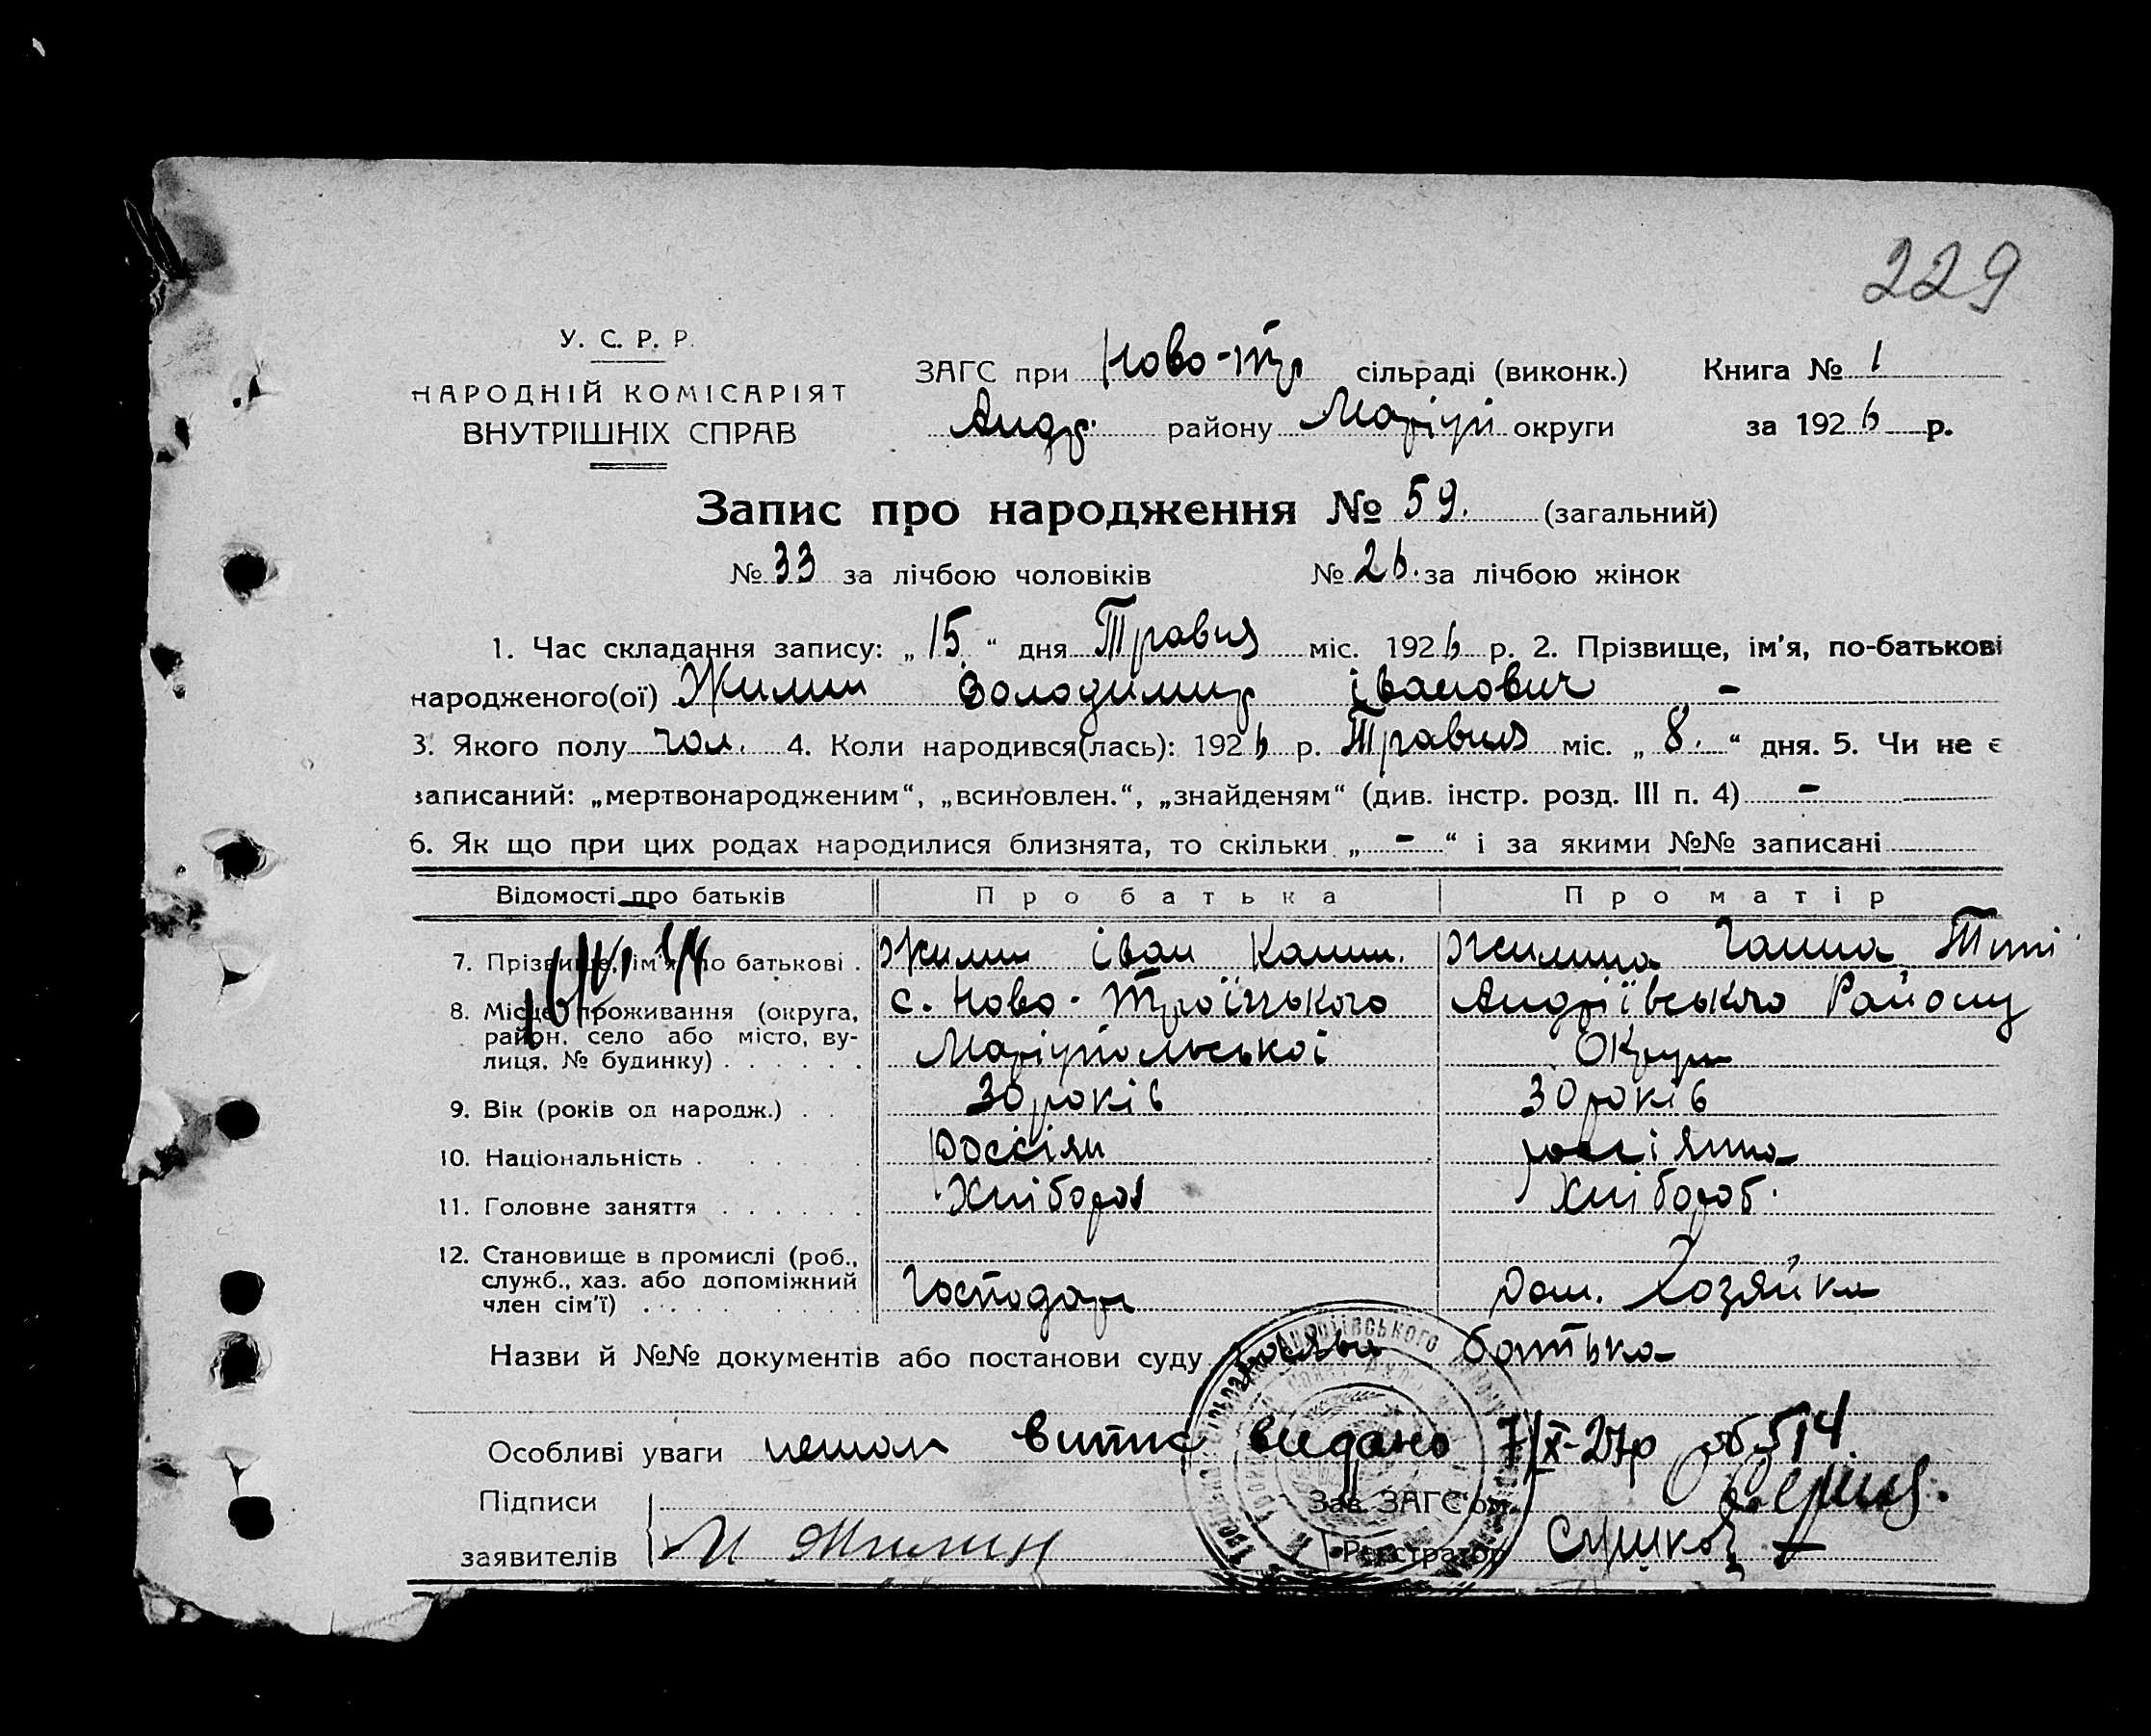 229
У. С. Р. Р.
НАРОДНІЙ КОМІСАРІЯТ
ВНУТРІШНІХ СПРАВ
ЗАГС при Ново-Тр сільраді (виконк.) Книга № 1
Андр. району Маріуп округи за 1926 р.
Запис про народження № 59. (загальний)
№ 33 за лічбою чоловіків № 26. за лічбою жінок
1. Час складання запису: „15“ дня Травня міс. 1926 р. 2. Прізвище, ім'я, по-батькові
народженого(ої) Жилин Володимир Іванович -
3. Якого полу чол. 4. Коли народився(лась): 1926 р. Травня міс. „8.“ дня. 5. Чи не є
записаний: „мертвонародженим“, „всиновлен.“, „знайденям“ (див. інстр. розд. III п. 4) -
6. Як що при цих родах народилися близнята, то скільки „-“ і за якими №№ записані
Відомості про батьків Про батька Про матір
7. Прізвище, ім'я, по батькові . Жилин Іван Жилина Ганна
8. Місце проживання (округа, район. село або місто, вулиця, № будинку) с. Ново-Троїцького Андріївського Району
Маріупольської Округи
9. Вік (років од народж.) 30 років 30 років
10. Національність россіян россіянка
11. Головне заняття Хлібороб Хлібороб.
12. Становище в промислі (роб., служб., хаз. або допоміжний член сім'ї) Господар Дом. Хозяйка
Назви й №№ документів або постанови суду заява батька
Особливі уваги немам Витяг видано 7/X-27р 514
Підписи
заявителів И Жилин
Зав. ЗАГС'ом
Реєстратор Сушков